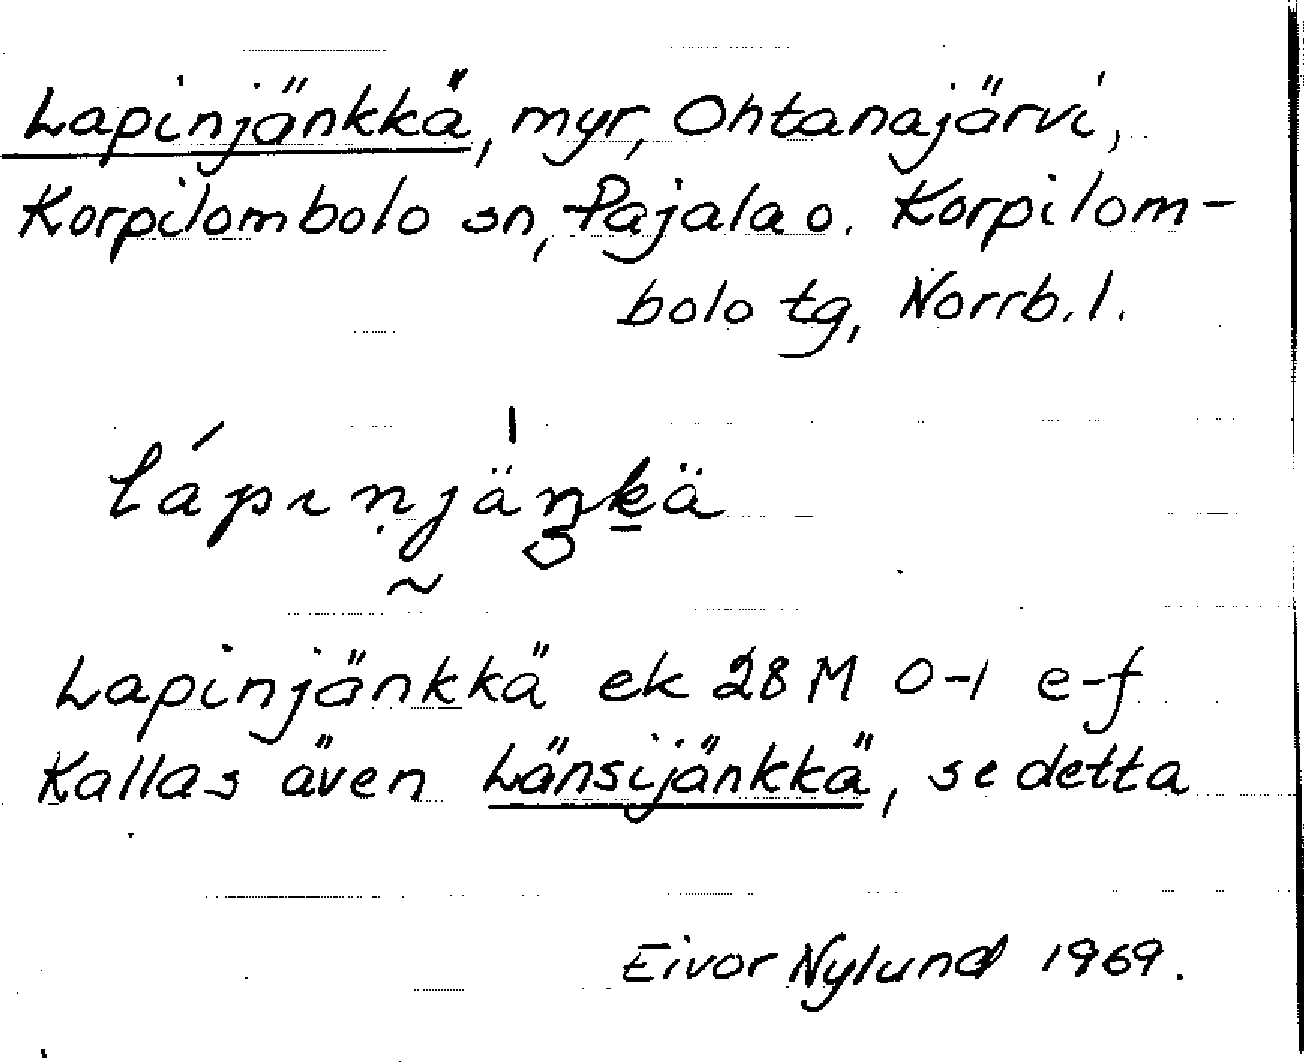 Lapinjänkkä, myr, Ohtanajärvi,
Korpilombolo sn, Pajala o. Korpilom-
bolo tg, Norrb. l.
lápinjäŋkä
Lapinjänkkä ek 28 M 0-1 e-f
Kallas även Länsijänkkä, se detta
Eivor Nylund 1969.